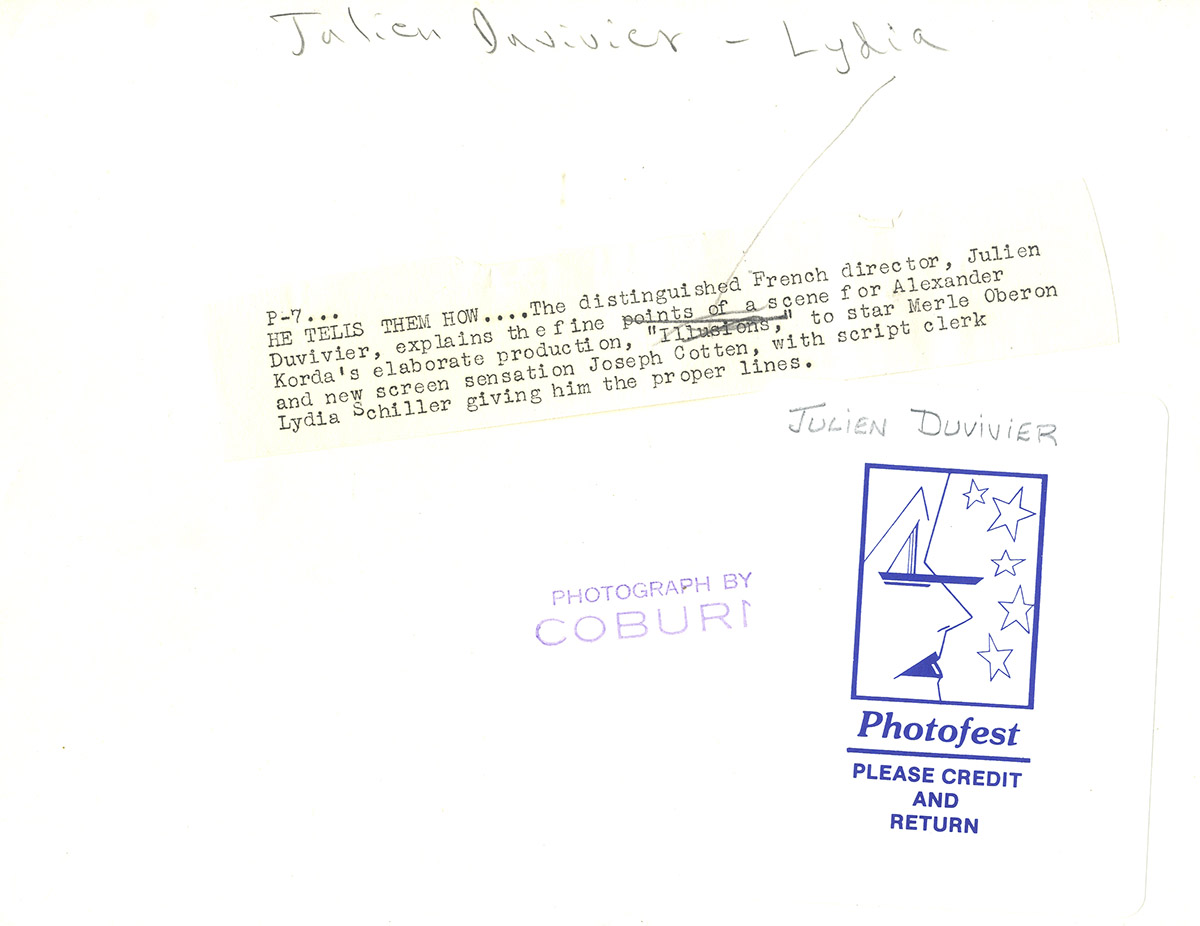 Julien Duvivier - Lydia
P-7...
HE TELlS THEM HOW....The distinguished French director, Julien
Duvivier, explains thefine points of a scene for Alexander
Korda's elaborate production, "Illusions," to star Merle Oberon
and new screen sensation Joseph Cotten, with script clerk
Lydia Schiller giving him the proper lines.
JULIEN DUVIVIER
PHOTOGRAPH BY
COBURN
Photofest
PLEASE CREDIT
AND
RETURN